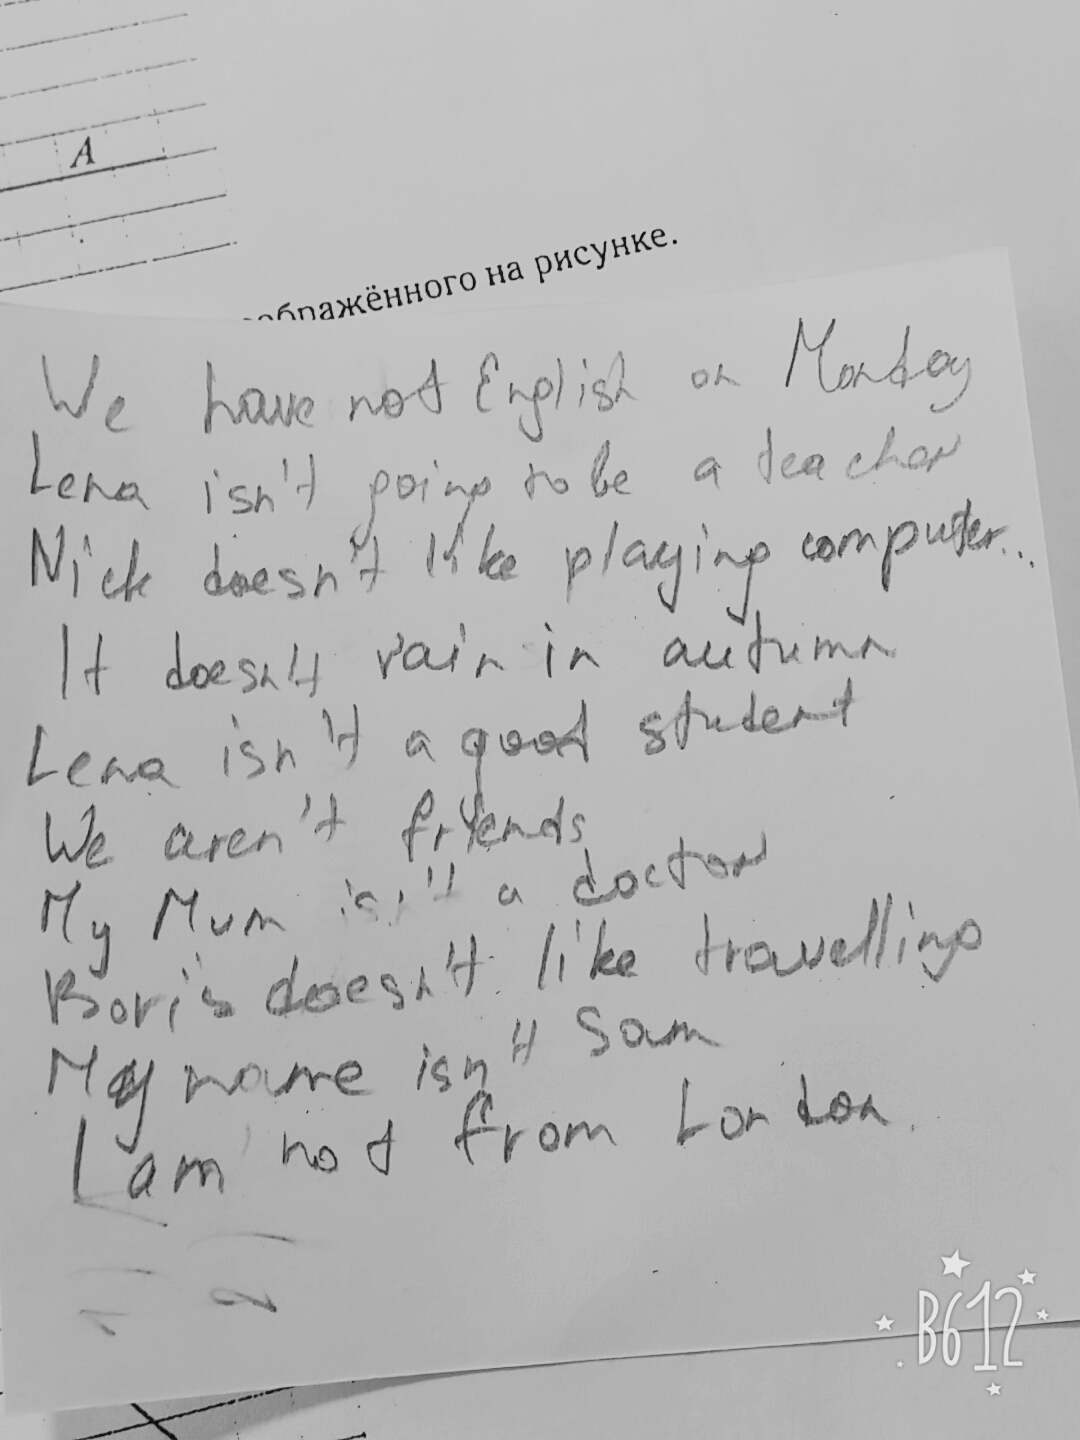 A
ображённого на рисунке.
We have not English on Monday
Lena isn't going to be a teacher
Nick doesn't like playing computer..
It doesn't rain in autumn
Lena isn't a good student
We aren't friends
My Mum isn't a doctor
Boris doesn't like travelling
My name isn't Sam
I am not from London.
B612